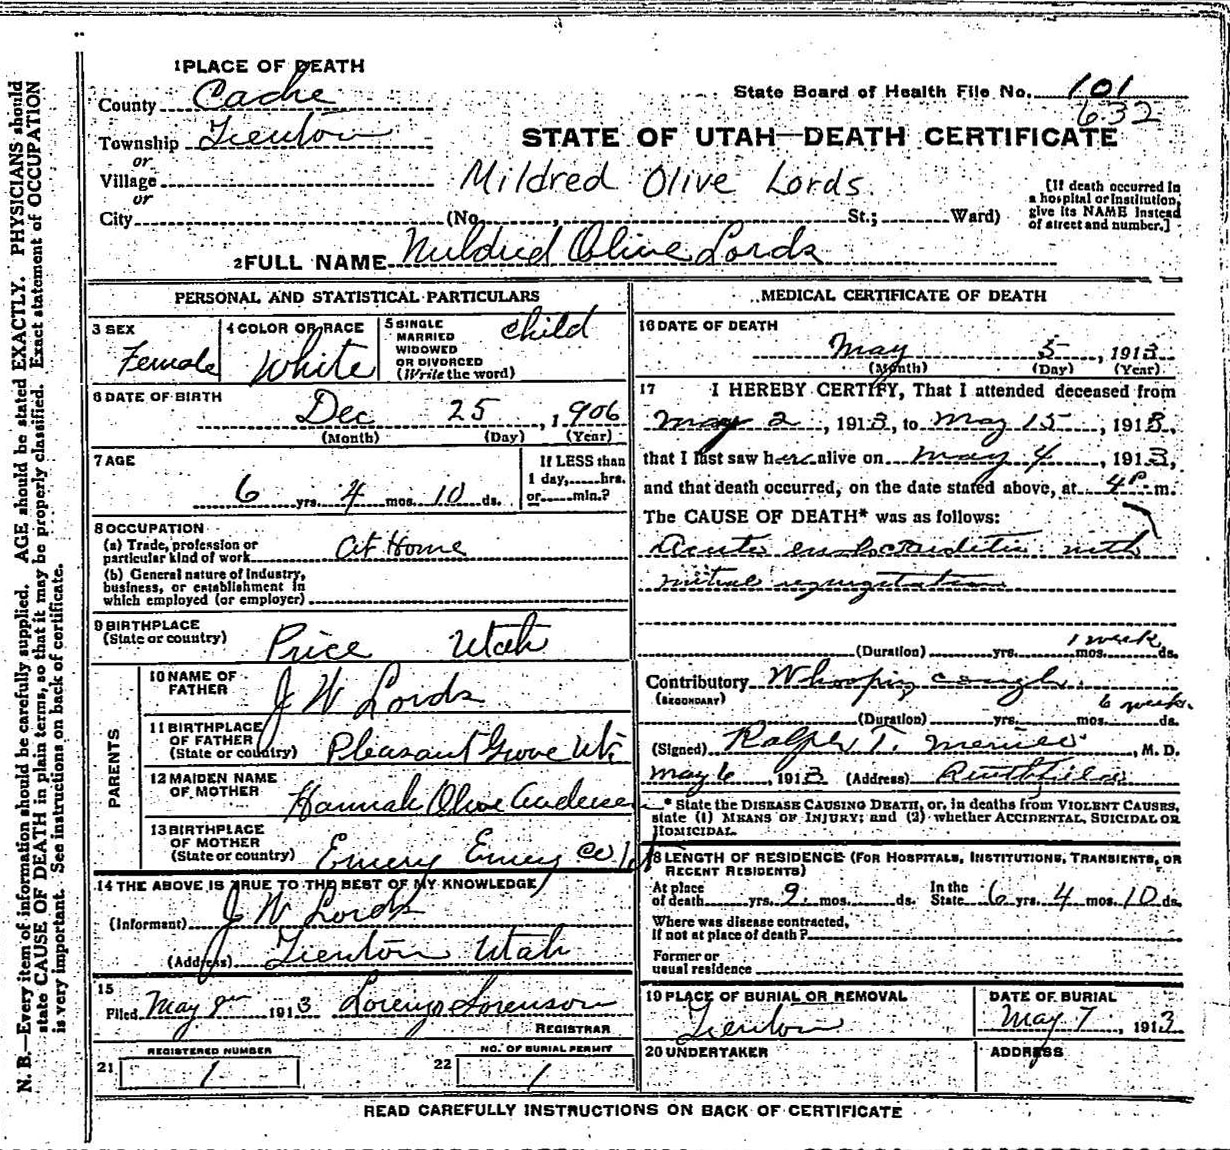 1 PLACE OF DEATH
County Cache
State Board of Health File No. 101
632
Township Trenton
STATE OF UTAH—DEATH CERTIFICATE
or
Village
Mildred Olive Lords
or
City (No. , St.; Ward)
[If death occurred in a hospital or institution, give its NAME instead of street and number.]
2 FULL NAME Mildred Olive Lords
PERSONAL AND STATISTICAL PARTICULARS
3 SEX
Female
4 COLOR OR RACE
White
5 SINGLE
MARRIED
WIDOWED
OR DIVORCED
(Write the word)
child
6 DATE OF BIRTH
Dec 25, 1906
(Month) (Day) (Year)
7 AGE
6 yrs. 4 mos. 10 ds.
If LESS than
1 day, hrs.
or min.?
8 OCCUPATION
(a) Trade, profession or
particular kind of work At Home
(b) General nature of industry,
business, or establishment in
which employed (or employer)
9 BIRTHPLACE
(State or country) Price Utah
PARENTS
10 NAME OF
FATHER J W Lords
11 BIRTHPLACE
OF FATHER
(State or country) Pleasant Grove Ut
12 MAIDEN NAME
OF MOTHER Hannah Olive
13 BIRTHPLACE
OF MOTHER
(State or country) Emery Emery Co
14 THE ABOVE IS TRUE TO THE BEST OF MY KNOWLEDGE
(Informant) J W Lords
(Address) Trenton Utah
15
Filed May 8 1913 Lorenzo Sorenson
REGISTRAR
REGISTERED NUMBER
21 1
NO. OF BURIAL PERMIT
22 1
MEDICAL CERTIFICATE OF DEATH
16 DATE OF DEATH
May 5, 1913
(Month) (Day) (Year)
17 I HEREBY CERTIFY, That I attended deceased from
May 2, 1913, to May 15, 1913,
that I last saw her alive on May 4, 1913,
and that death occurred, on the date stated above, at 4 P m.
The CAUSE OF DEATH* was as follows:
Acute endocarditis with
mitral regurgitation
1 week
(Duration) yrs. mos. ds.
Contributory Whooping cough
(SECONDARY)
6 weeks
(Duration) yrs. mos. ds.
(Signed) Ralph T. , M. D.
May 6, 1913 (Address)
* State the DISEASE CAUSING DEATH, or, in deaths from VIOLENT CAUSES,
state (1) MEANS OF INJURY; and (2) whether ACCIDENTAL, SUICIDAL OR
HOMICIDAL.
18 LENGTH OF RESIDENCE (FOR HOSPITALS, INSTITUTIONS, TRANSIENTS, OR
RECENT RESIDENTS)
At place
of death yrs. 9 mos. ds.
In the
State 6 yrs. 4 mos. 10 ds.
Where was disease contracted,
If not at place of death?
Former or
usual residence
19 PLACE OF BURIAL OR REMOVAL
Trenton
DATE OF BURIAL
May 7, 1913
20 UNDERTAKER
ADDRESS
READ CAREFULLY INSTRUCTIONS ON BACK OF CERTIFICATE
N. B.—Every item of information should be carefully supplied. AGE should be stated EXACTLY. PHYSICIANS should
state CAUSE OF DEATH in plain terms, so that it may be properly classified. Exact statement of OCCUPATION
is very important. See instructions on back of certificate.